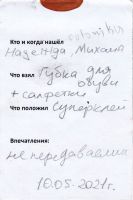 Кто и когда нашёл
Надежда Михаил
Что взял Губка для
обуви
+ салфетки
Что положил Суперклей
Впечатления:
не передаваемы
10.05.2021г.